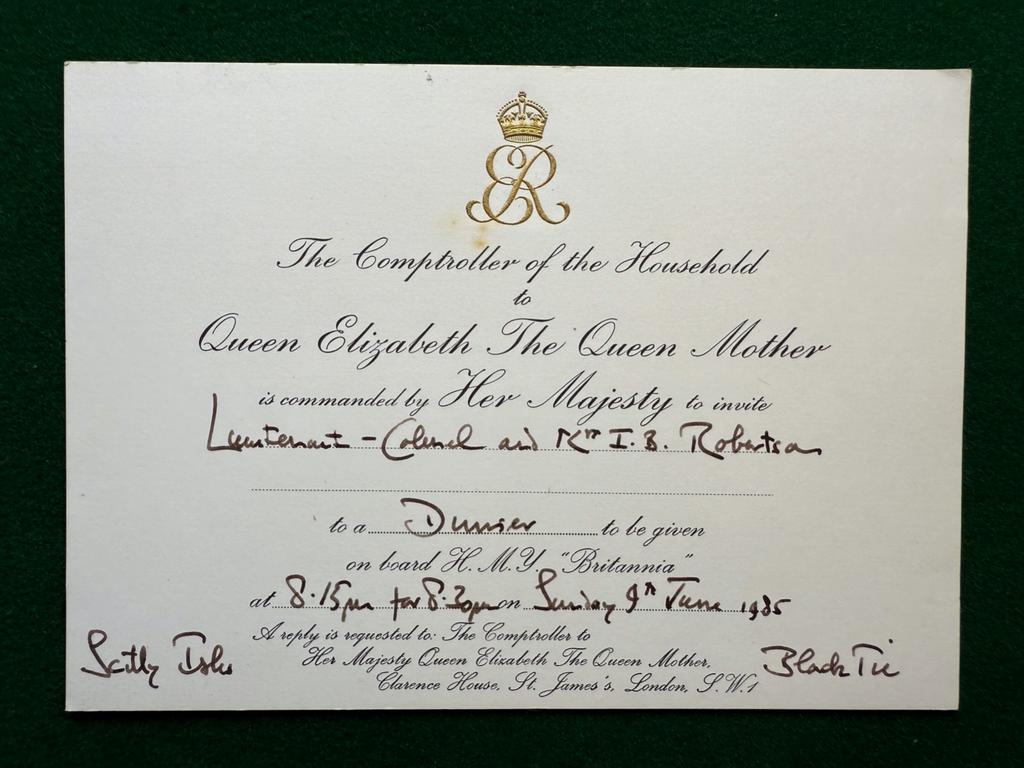 ER
The Comptroller of the Household
to
Queen Elizabeth The Queen Mother
is commanded by Her Majesty to invite
Lieutenant-Colonel and Mrs I. B. Robertson
to a Dinner to be given
on board H.M.Y. "Britannia"
at 8.15pm for 8.30pm on Sunday 9th June 1985
A reply is requested to: The Comptroller to
Her Majesty Queen Elizabeth The Queen Mother,
Clarence House, St. James's, London, S.W.1
Scilly Isles
Black Tie